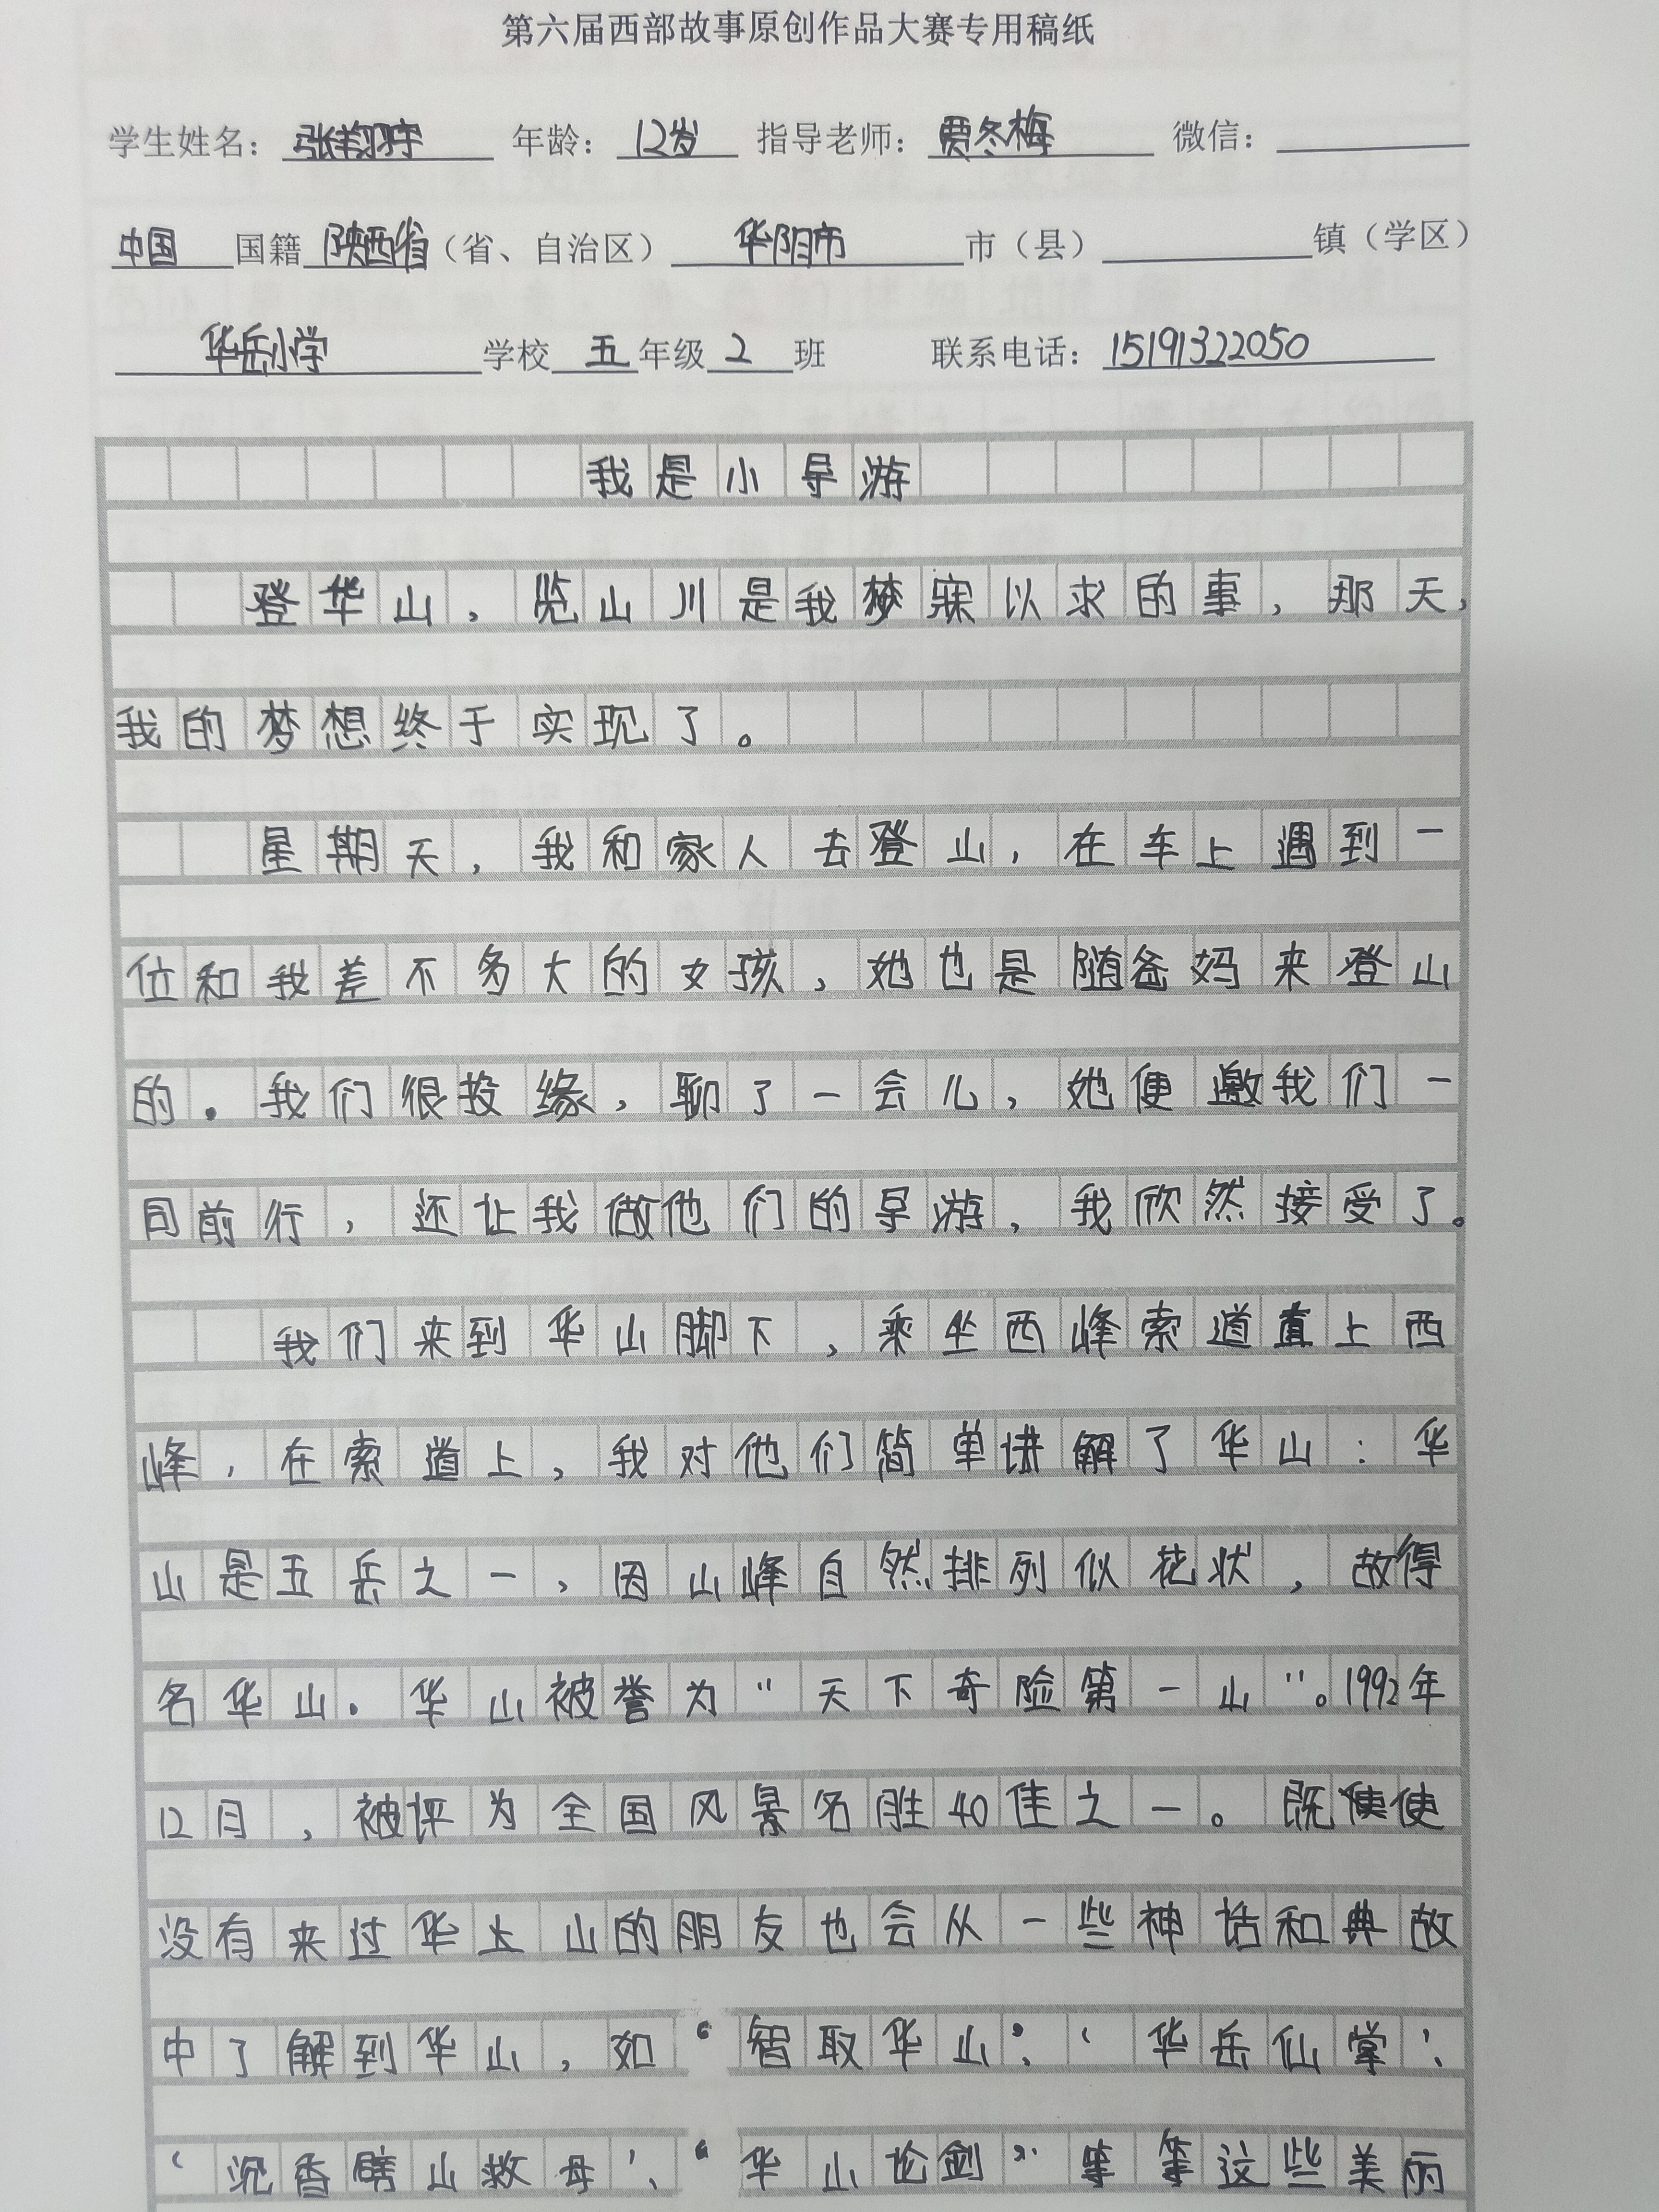 第六届西部故事原创作品大赛专用稿纸
学生姓名：张翔宇 年龄：12岁 指导老师：贾冬梅 微信：
中国 国籍 陕西省（省、自治区） 华阴市 市（县） 镇（学区）
华岳小学 学校 五 年级 2 班 联系电话：15191322050
我是小导游
登华山，览山川是我梦寐以求的事，那天，
我的梦想终于实现了。
星期天，我和家人去登山，在车上遇到一
位和我差不多大的女孩，她也是随爸妈来登山
的。我们很投缘，聊了一会儿，她便邀我们一
同前行，还让我做他们的导游，我欣然接受了。
我们来到华山脚下，乘坐西峰索道直上西
峰，在索道上，我对他们简单讲解了华山：华
山是五岳之一，因山峰自然排列似花状，故得
名华山。华山被誉为“天下奇险第一山”。1992年
12月，被评为全国风景名胜40佳之一。既使使
没有来过华山山的朋友也会从一些神话和典故
中了解到华山，如“智取华山”、‘华岳仙掌’、
‘沉香劈山救母’、“华山论剑”等等这些美丽